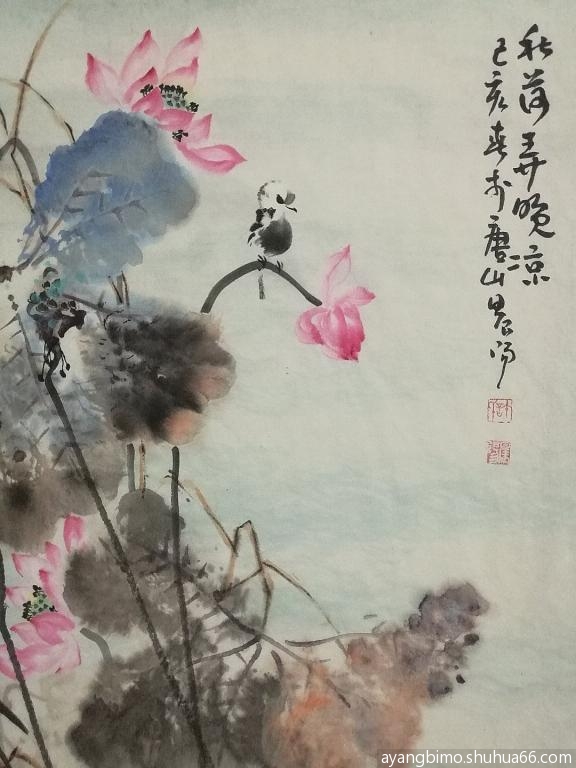 秋荷弄晚凉
己亥春於唐山
ayangbimo.shuhua66.com